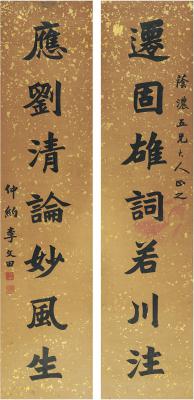 遷固雄詞若川注
蔭濃五兄大人正之
應劉清論妙風生
仲約李文田